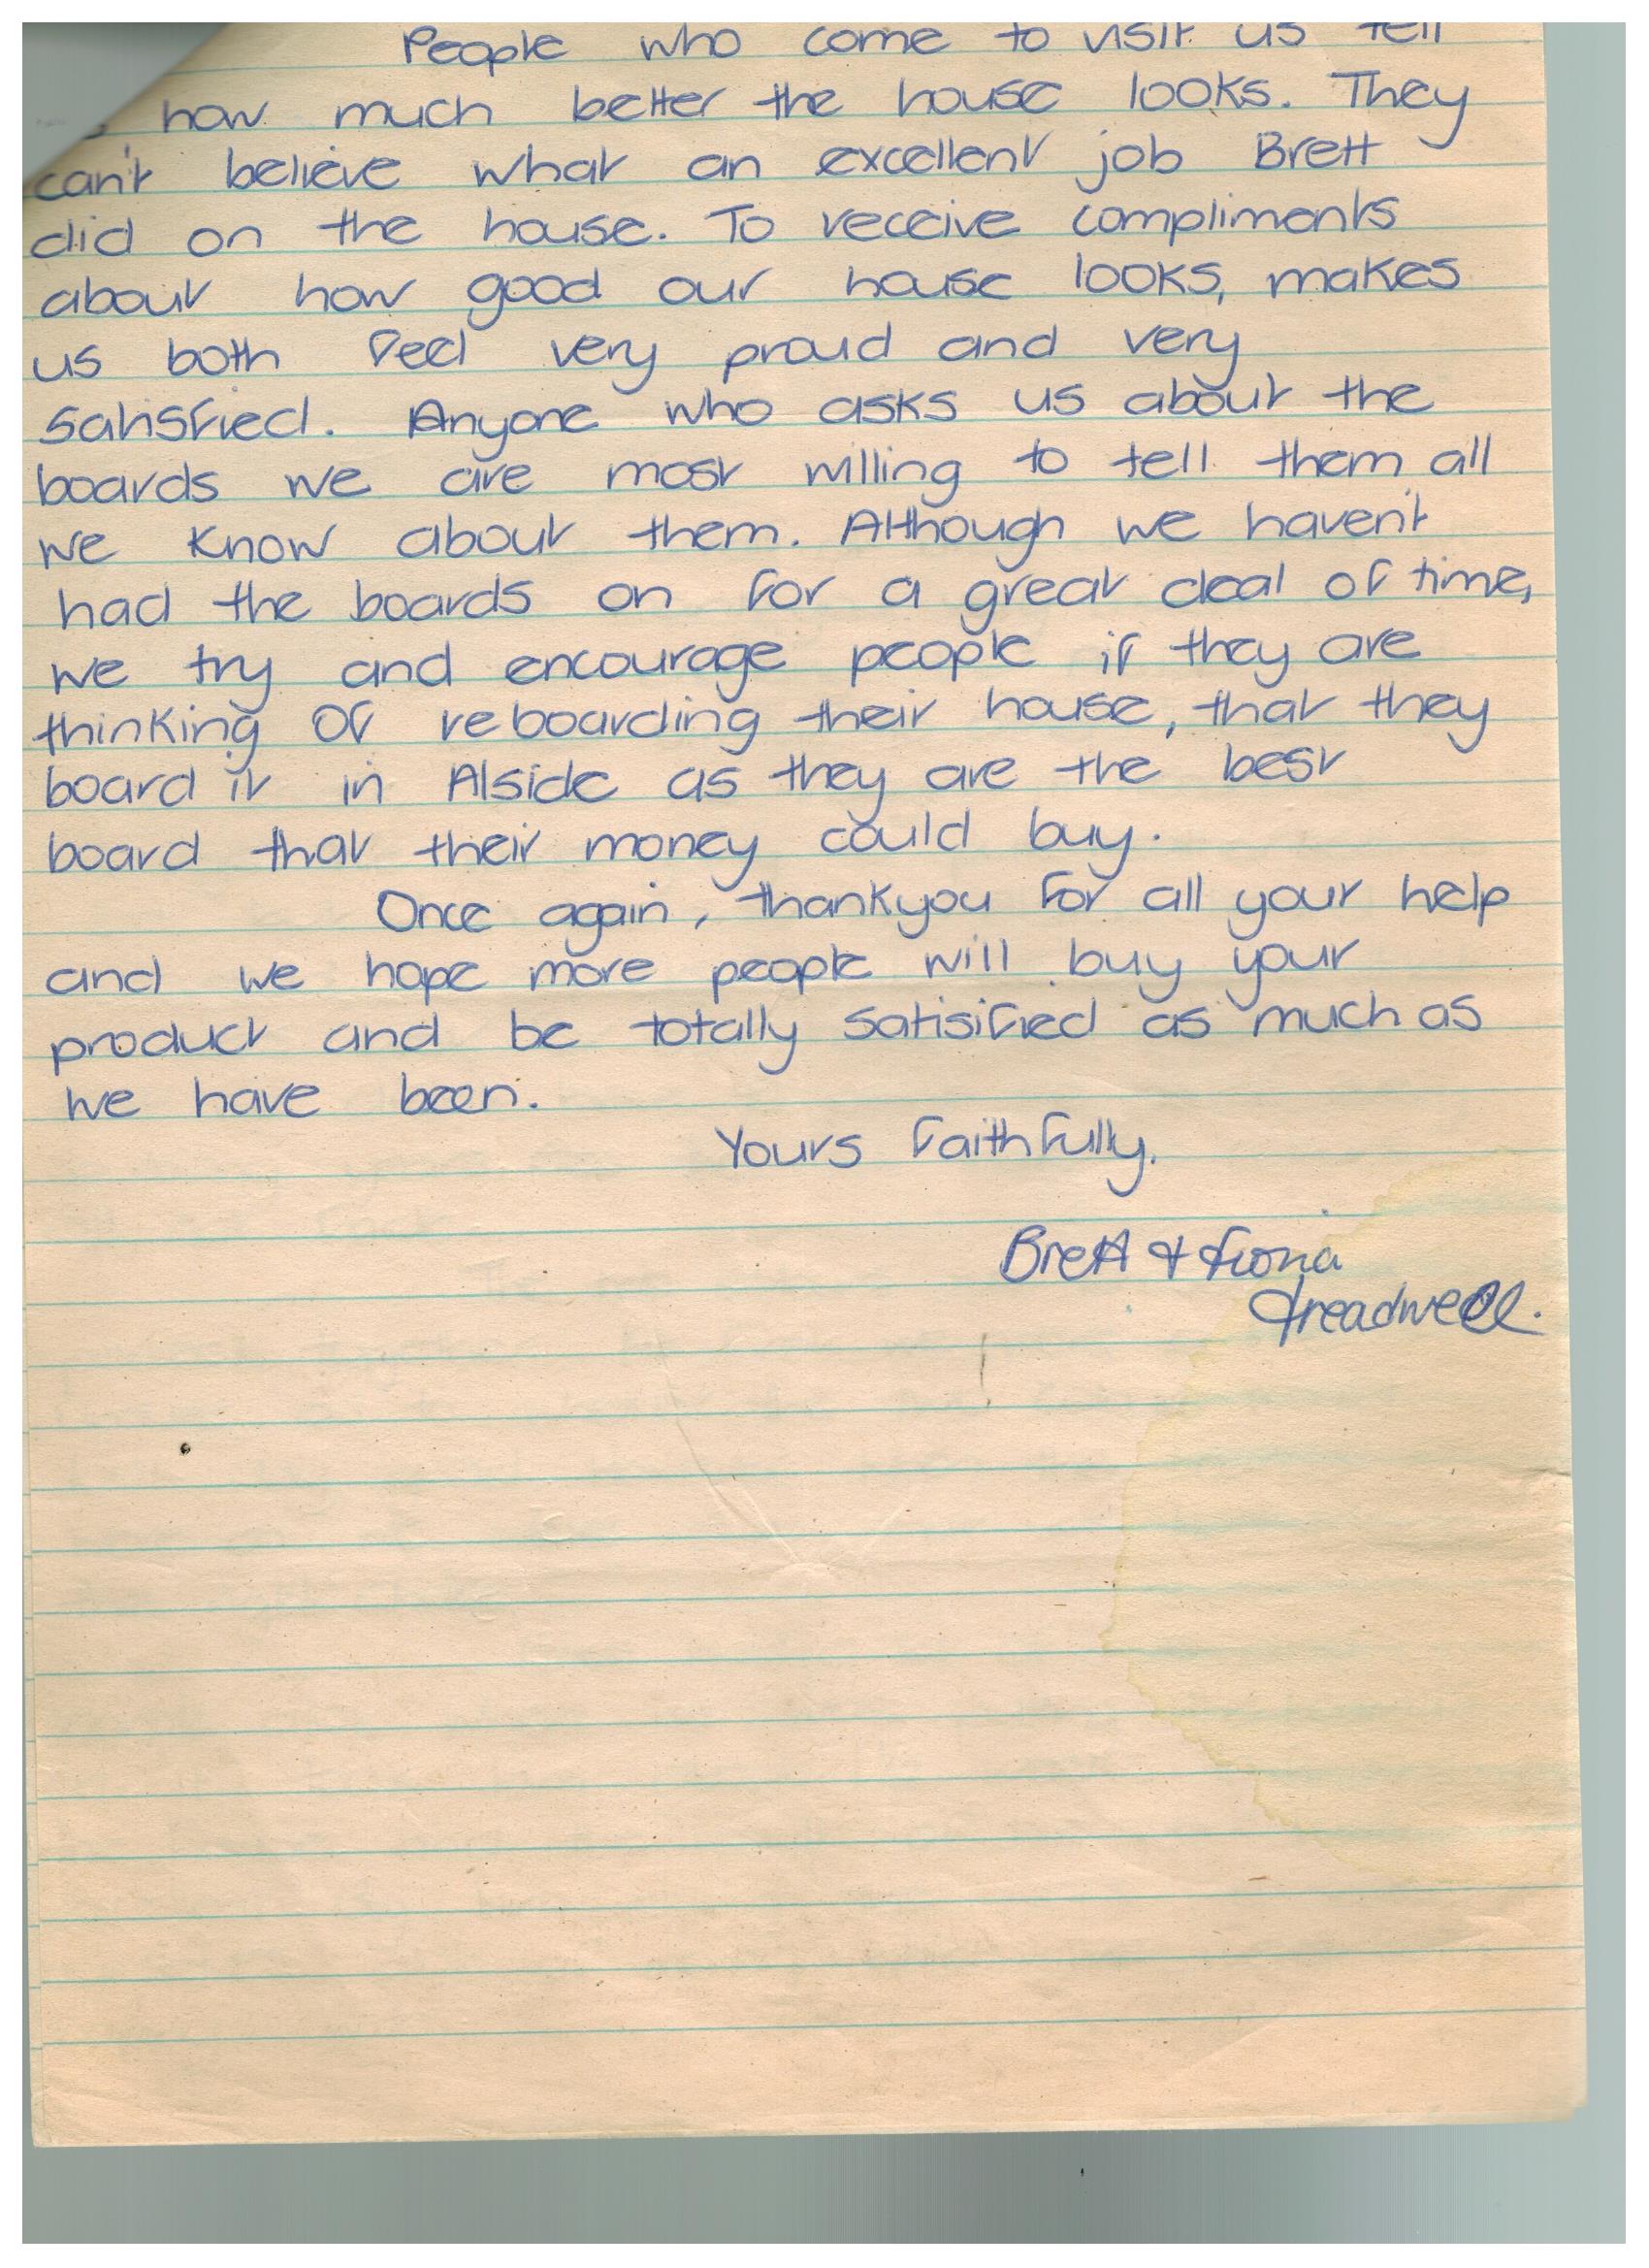 People who come to visit us tell
how much better the house looks. They
can't believe what an excellent job Brett
did on the house. To receive compliments
about how good our house looks, makes
us both feel very proud and very
satisfied. Anyone who asks us about the
boards we are most willing to tell them all
we know about them. Although we haven't
had the boards on for a great deal of time,
we try and encourage people if they are
thinking of reboarding their house, that they
board it in Alside as they are the best
board that their money could buy.
Once again, thankyou for all your help
and we hope more people will buy your
product and be totally satisified as much as
we have been.
Yours faithfully.
Brett & Fiona
Treadwell.